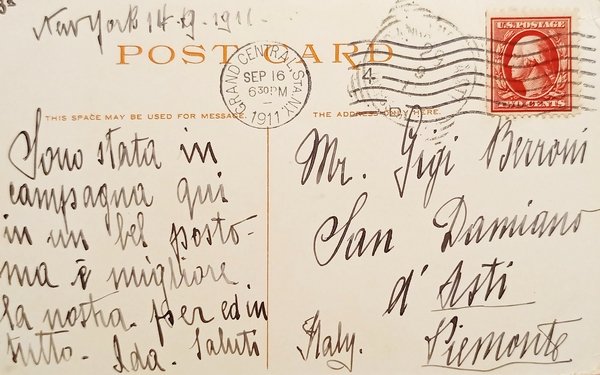 New York 14.9.1911.
POST CARD
U.S. POSTAGE
TWO CENTS
GRAND CENTRAL STA. N.Y.
SEP 16
630PM
1911
4
THIS SPACE MAY BE USED FOR MESSAGE.
THE ADDRESS ONLY HERE.
Sono stata in
campagna qui
in un bel posto-
ma è migliore
la nostra. per ed in
tutto. Ida. Saluti
Mr. Gigi Berroni
San Damiano
d'Asti
Italy. Piemonte